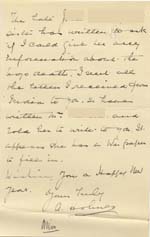 The Lady J
Sister has written to ask
if I could give her any
information about the
boys death. I sent all
the letters I received from
India to you. I have
written to and
told her to write to you. It
appears she has a War paper
to fill in.
Wishing you a Happy New
Year.
Yours Truly
A. Holmes